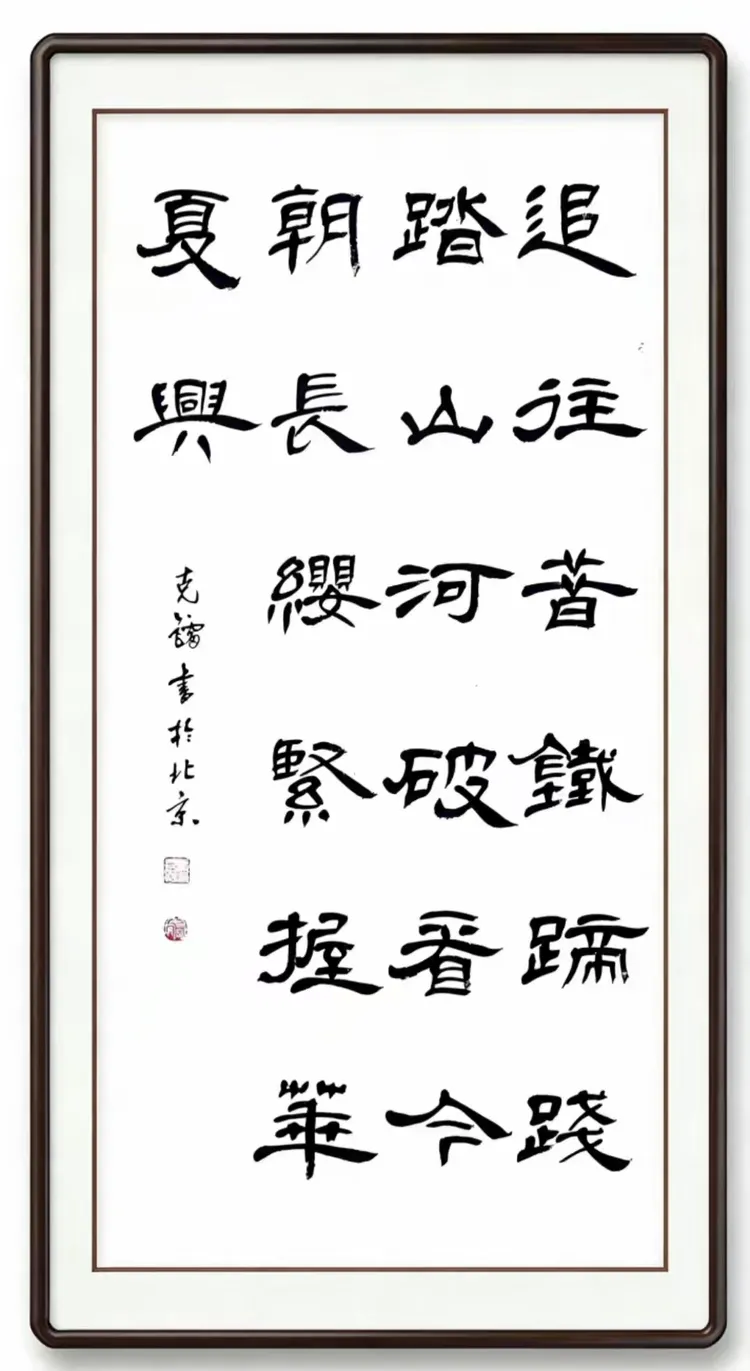 追往昔鐵蹄踐
踏山河破看今
朝長纓緊握華
夏興
克鏞書於北京